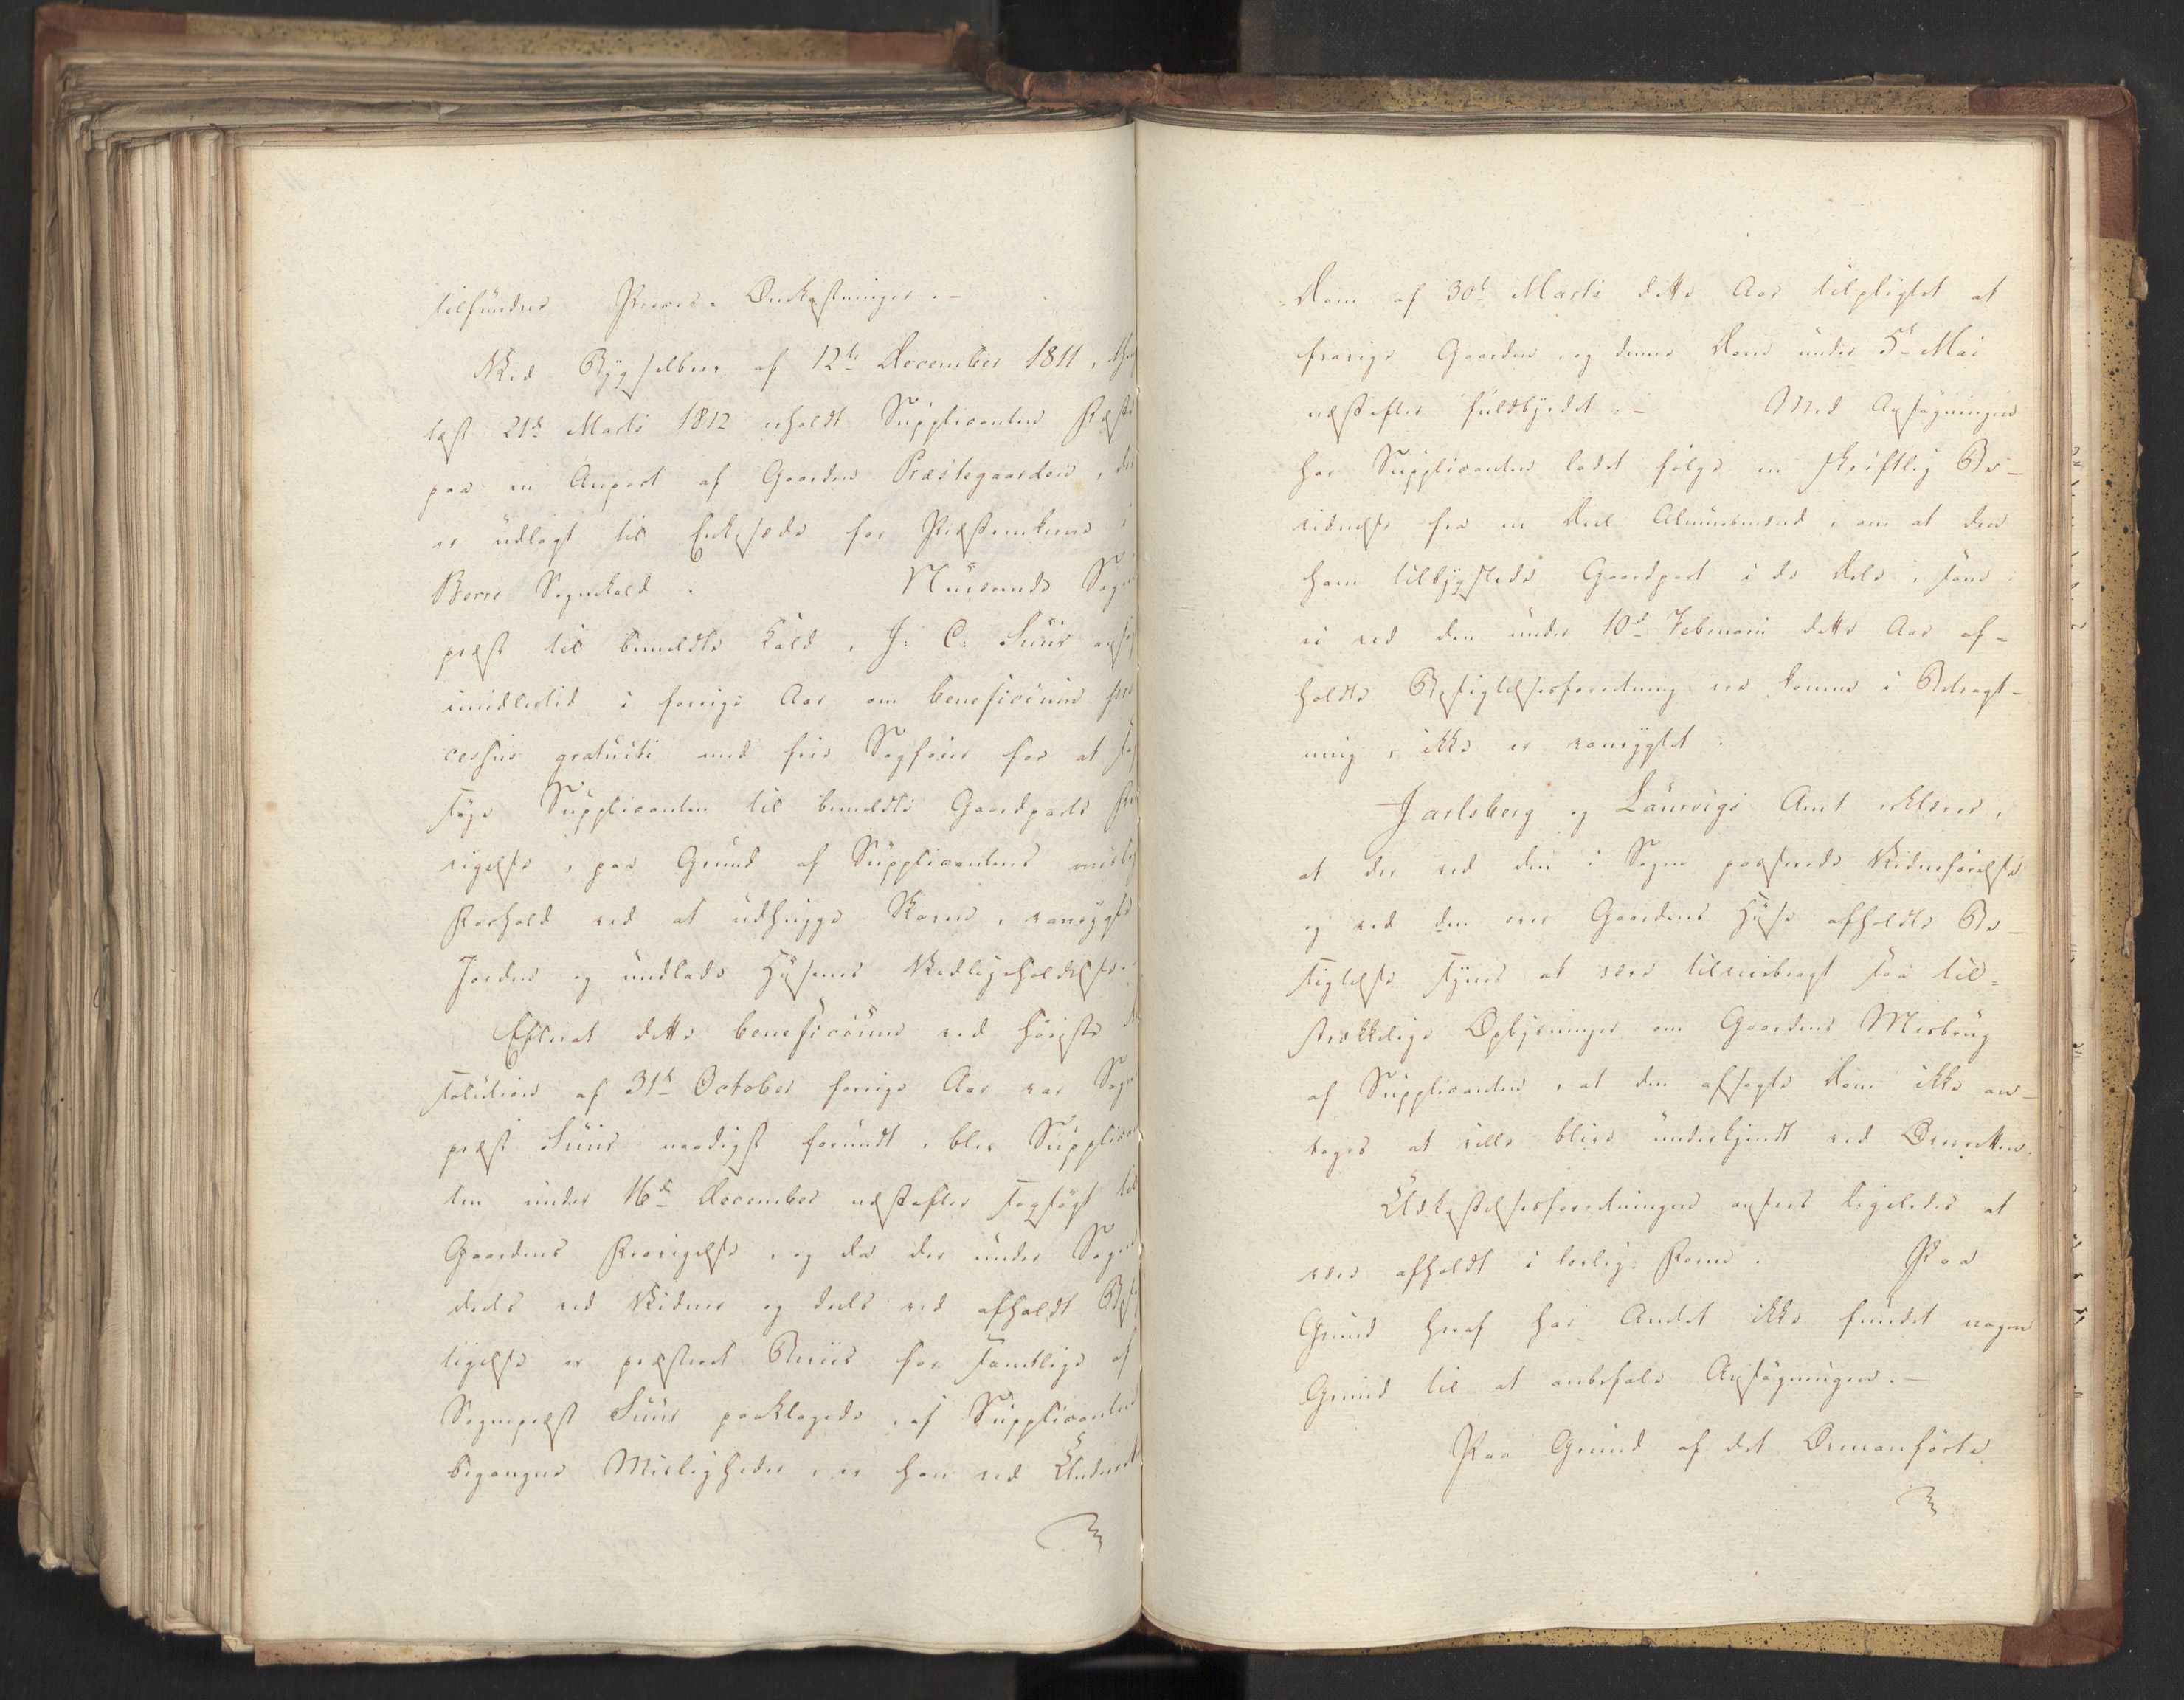 tilfundne Proces-Omkostninger. –
Ved Bygselbrev af 12te December 1811, thing-
læst 21de Marts 1812 erholdt Supplicanten Fæste
paa en Anpart af Gaarden Præstegaarden, der
er udlagt til Enkesæde for Præsteenkerne i
Borre Sognekald. Nuværende Sogne-
præst til bemeldte Kald, J: C: Juür ansøgte
imidlertid i forrige Aar om beneficium pro-
cessus gratuiti med frie Sagfører for at sag-
søge Supplicanten til bemeldte Gaardparts Fra-
vigelse, paa Grund af Supplicantens mislige
Forhold ved at udhugge Skoven, vanrygte
Jorden og undlade Husenes Vedligeholdelse.
Efterat dette beneficium ved høieste Re-
solution af 31te October forrige Aar var Sogne-
præst Juür naadigst forundt, blev Supplican-
ten under 16de December næstefter sagsøgt til
Gaardens Fravigelse, og da der under Sagen
deels ved Vidner og deels ved afholdt Besig-
tigelse er præsteret Beviis for samtlige af
Sognepræst Juür paaklagede, af Supplicanten
begangne Misligheder, er han ved Underrets
Dom af 30te Marts dette Aar tilpligtet at
fravige Gaarden, og denne Dom under 5te Mai
næstefter fuldbyrdet. – Med Ansøgningen
har Supplicanten ladet følge en skriftlig Be-
vidnelse fra en Deel Almuesmænd, om at den
ham tilbygslede Gaardpart i de Dele, som
ei ved den under 10de Februarii dette Aar af-
holdte Besigtelsesforretning ere komne i Betragt-
ning, ikke er vanrygtet.
Jarlsberg og Laurvigs Amt erklærer,
at der ved den i Sagen passerede Vidneførelse
og ved den over Gaardens Huse afholdte Be-
sigtelse synes at være tilveiebragt saa til-
strækkelige Oplysninger om Gaardens Misbrug
af Supplicanten, at den afsagte Dom ikke an-
tages at ville blive underkjendt ved Overretten.
Udkastelsesforretningen ansees ligeledes at
være afholdt i lovlig Form. Paa
Grund heraf har Amtet ikke fundet nogen
Grund til at anbefale Ansøgningen. –
Paa Grund af det Ovenanførte